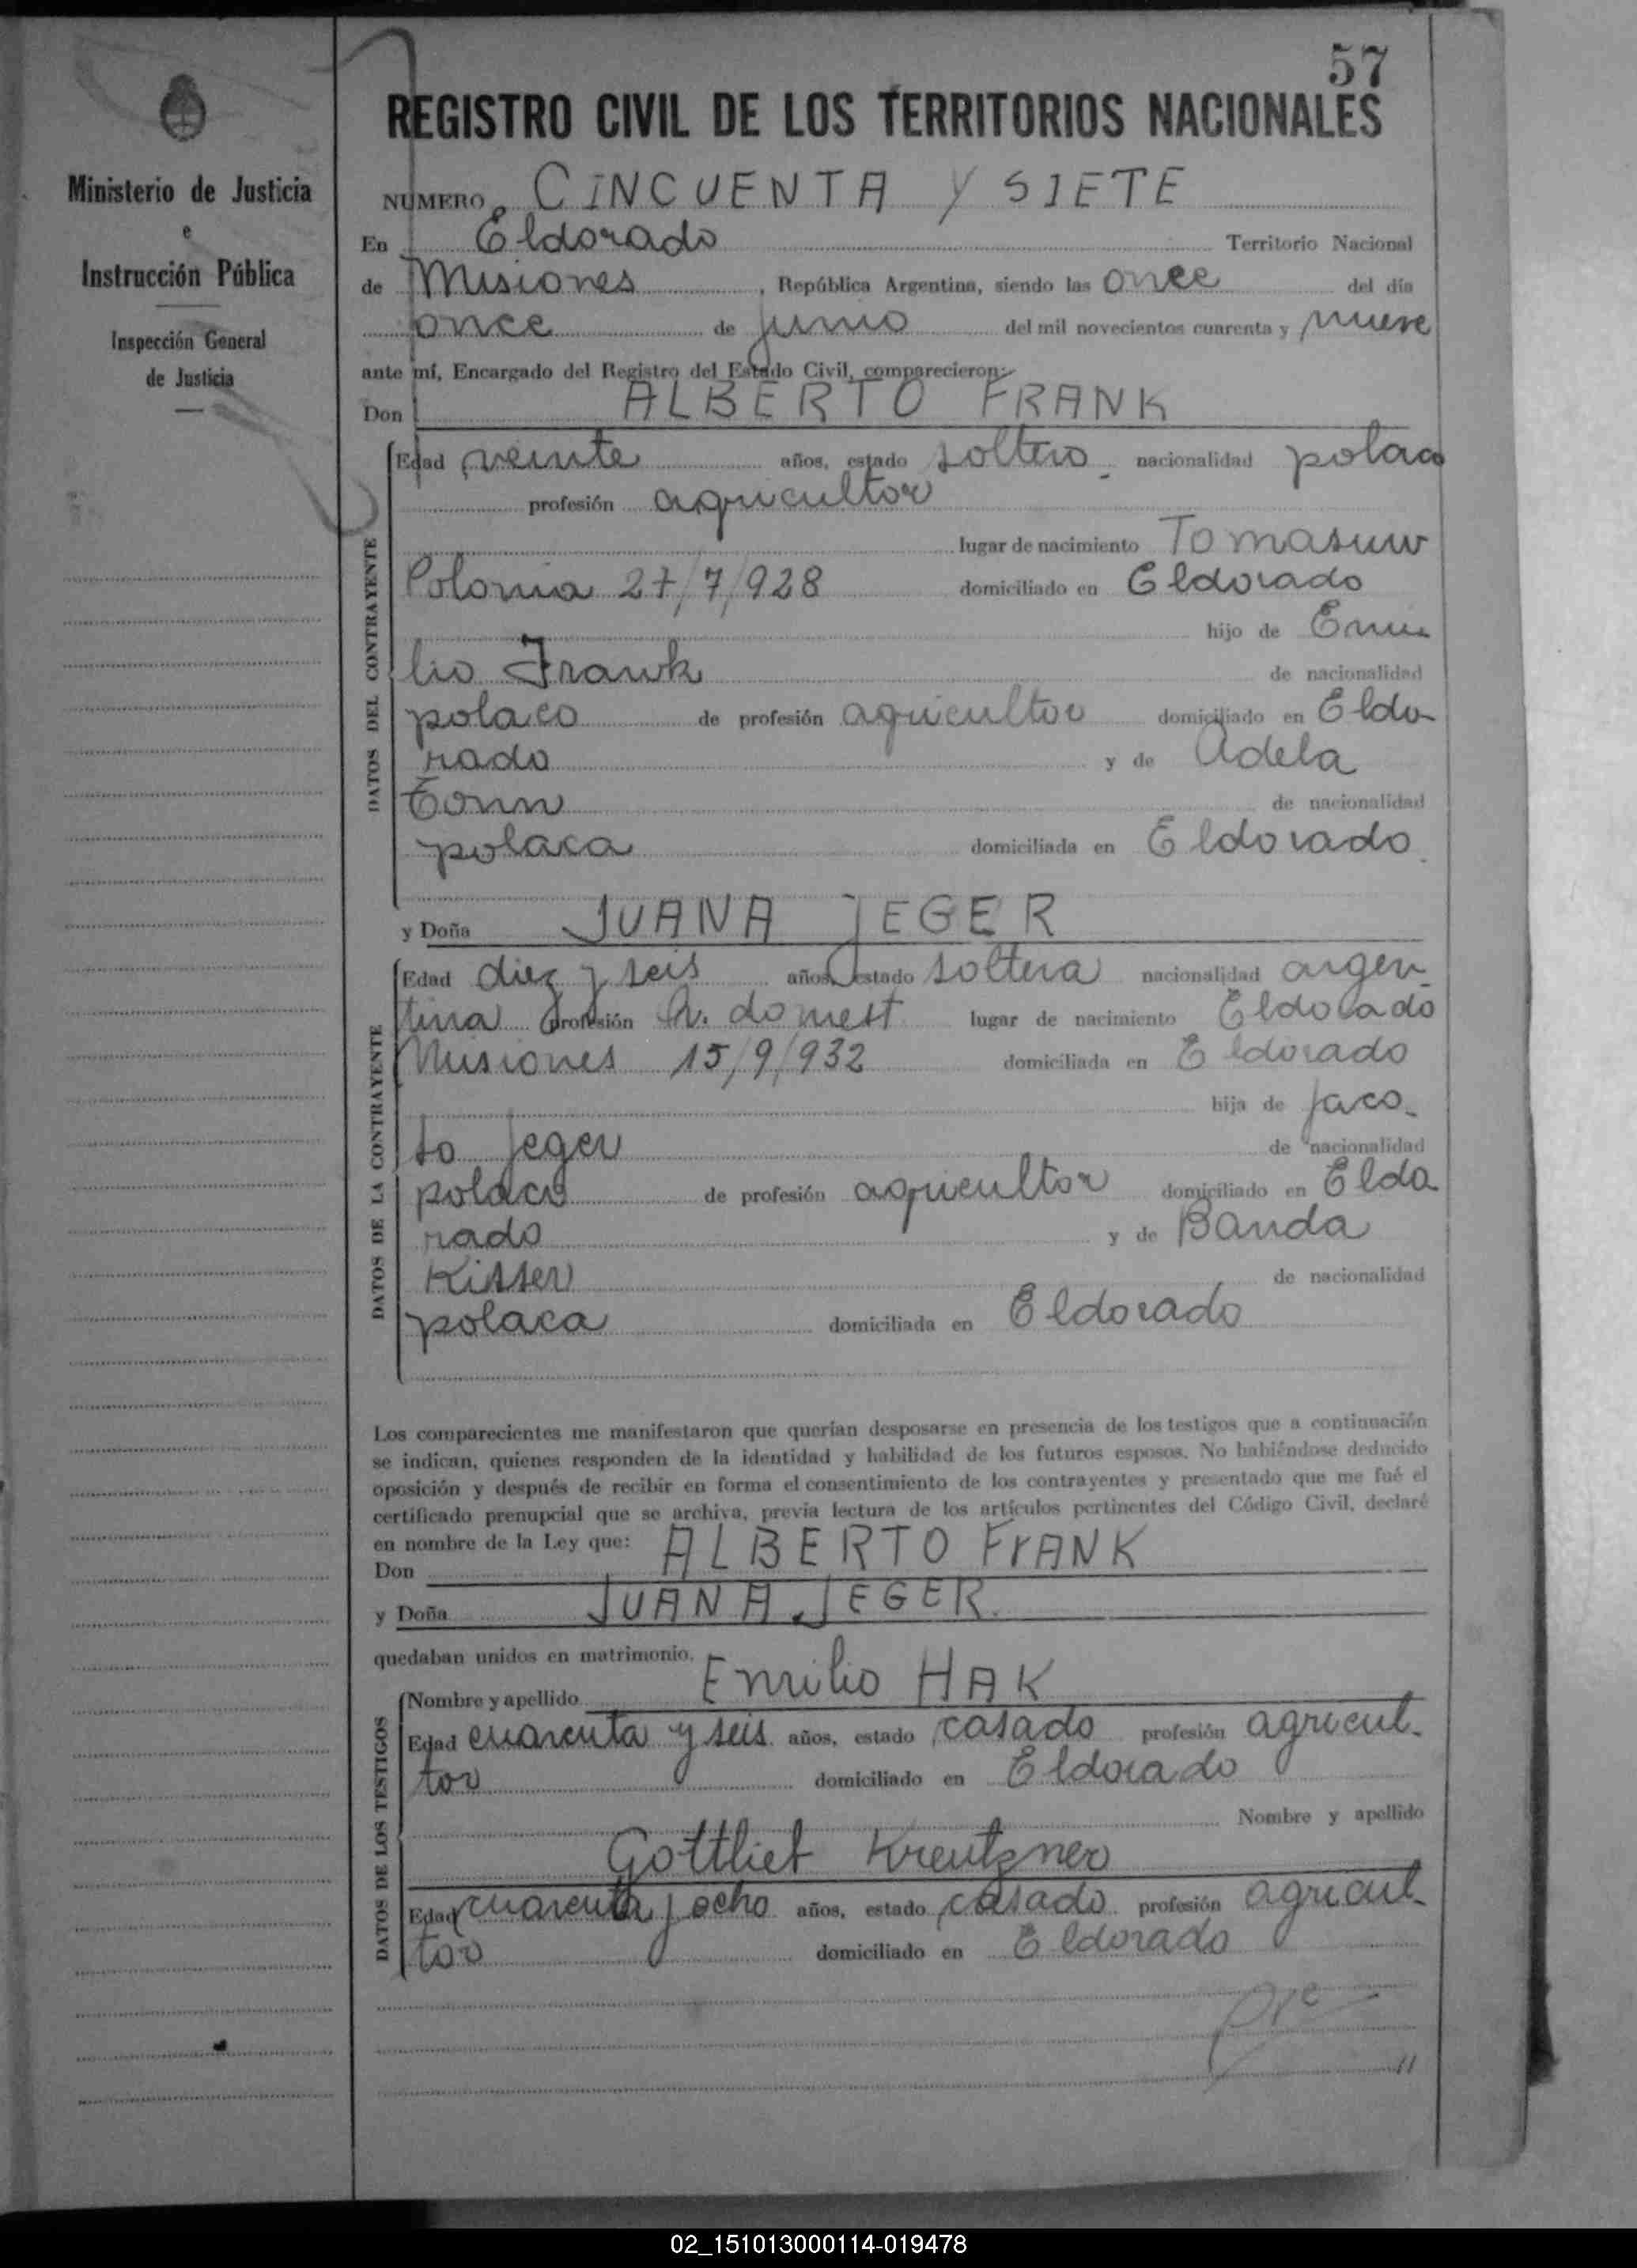 57
REGISTRO CIVIL DE LOS TERRITORIOS NACIONALES
Ministerio de Justicia
e
Instrucción Pública
Inspección General
de Justicia
NUMERO CINCUENTA Y SIETE
En Eldorado Territorio Nacional
de Misiones, República Argentina, siendo las once del día
once de junio del mil novecientos cuarenta y nueve
ante mí, Encargado del Registro del Estado Civil, comparecieron:
Don ALBERTO FRANK
DATOS DEL CONTRAYENTE
Edad veinte años, estado soltero nacionalidad polaco
profesión agricultor
lugar de nacimiento Tomasuw
Polonia 27/7/928 domiciliado en Eldorado
hijo de Emi
lio Frank de nacionalidad
polaco de profesión agricultor domiciliado en Eldo-
rado y de Adela
Tonn de nacionalidad
polaca domiciliada en Eldorado
y Doña JUANA JEGER
DATOS DE LA CONTRAYENTE
Edad diez y seis años, estado soltera nacionalidad argen-
tina profesión q. domest lugar de nacimiento Eldorado
Misiones 15/9/932 domiciliada en Eldorado
hija de Jaco-
bo Jeger de nacionalidad
polaco de profesión agricultor domiciliado en Eldo
rado y de Banda
Kisser de nacionalidad
polaca domiciliada en Eldorado
Los comparecientes me manifestaron que querían desposarse en presencia de los testigos que a continuación
se indican, quienes responden de la identidad y habilidad de los futuros esposos. No habiéndose deducido
oposición y después de recibir en forma el consentimiento de los contrayentes y presentado que me fué el
certificado prenupcial que se archiva, previa lectura de los artículos pertinentes del Código Civil, declaré
en nombre de la Ley que:
Don ALBERTO FrANK
y Doña JUANA JEGER
quedaban unidos en matrimonio.
DATOS DE LOS TESTIGOS
Nombre y apellido Emilio HAK
Edad cuarenta y seis años, estado casado profesión agricul-
tor domiciliado en Eldorado
Nombre y apellido
Gottlieb Kreutzner
Edad cuarenta y ocho años, estado casado profesión agricul-
tor domiciliado en Eldorado
02_151013000114-019478